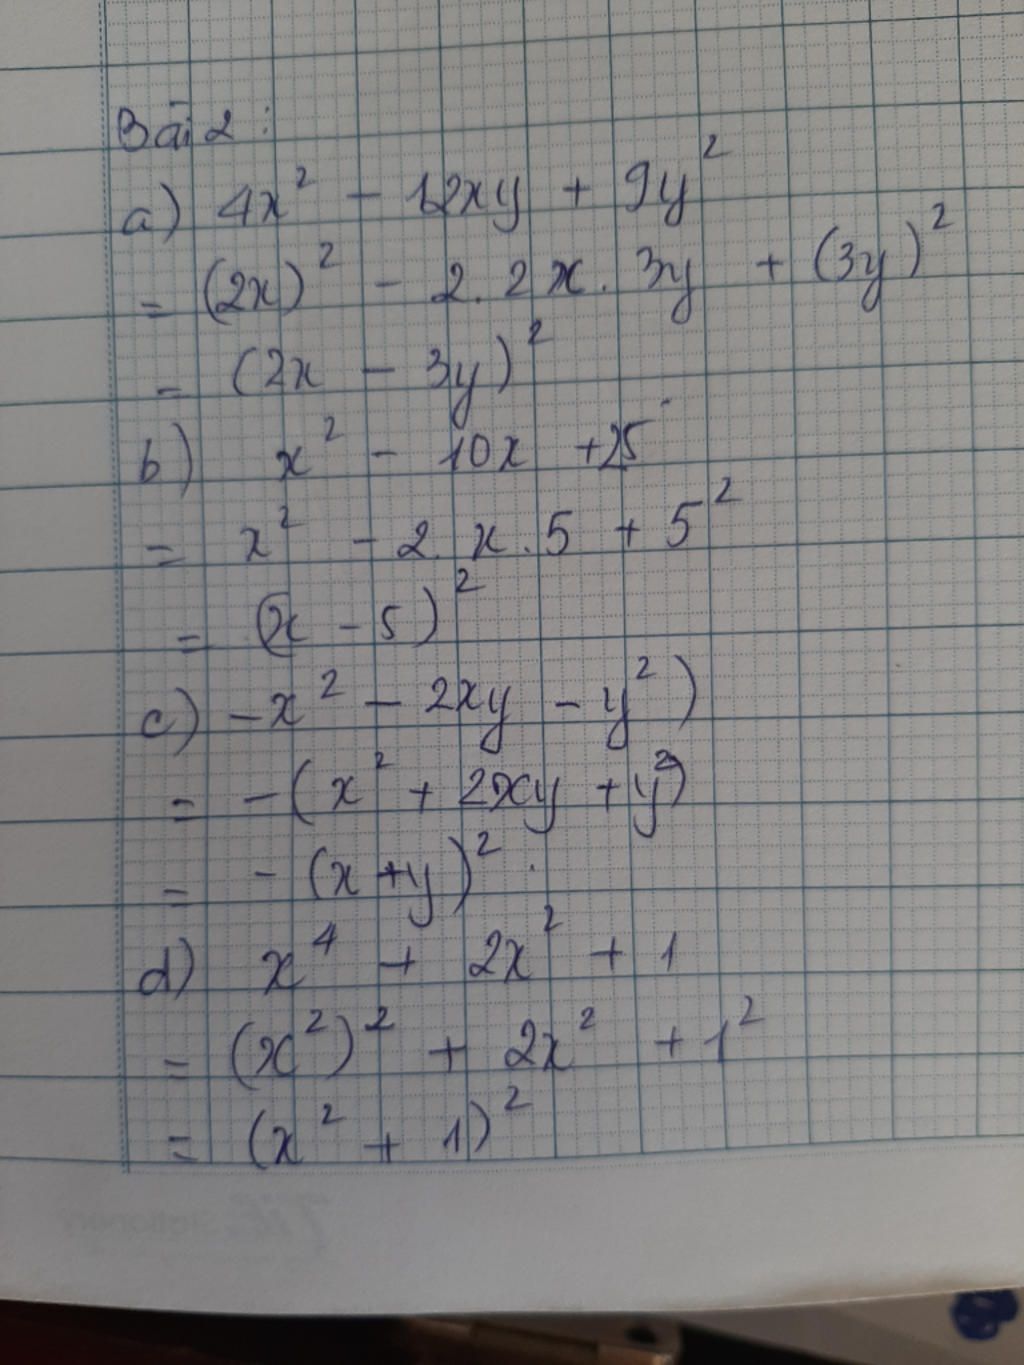 Bài 2 :
a) 4x² - 12xy + 9y²
= (2x)² - 2. 2x. 3y + (3y)²
= (2x - 3y)²
b) x² - 10x + 25
= x² - 2. x. 5 + 5²
= (x - 5)²
c) -x² - 2xy - y²)
= -(x² + 2xy + y²)
= - (x+y)².
d) x⁴ + 2x² + 1
= (x²)² + 2x² + 1²
= (x² + 1)²